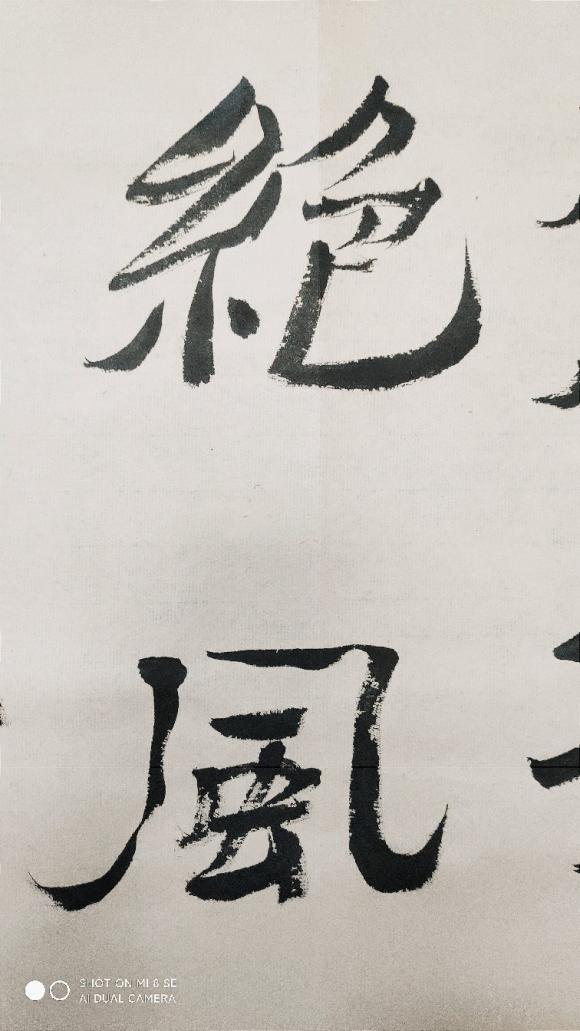 絶
風
SHOT ON MI 8 SE
AI DUAL CAMERA